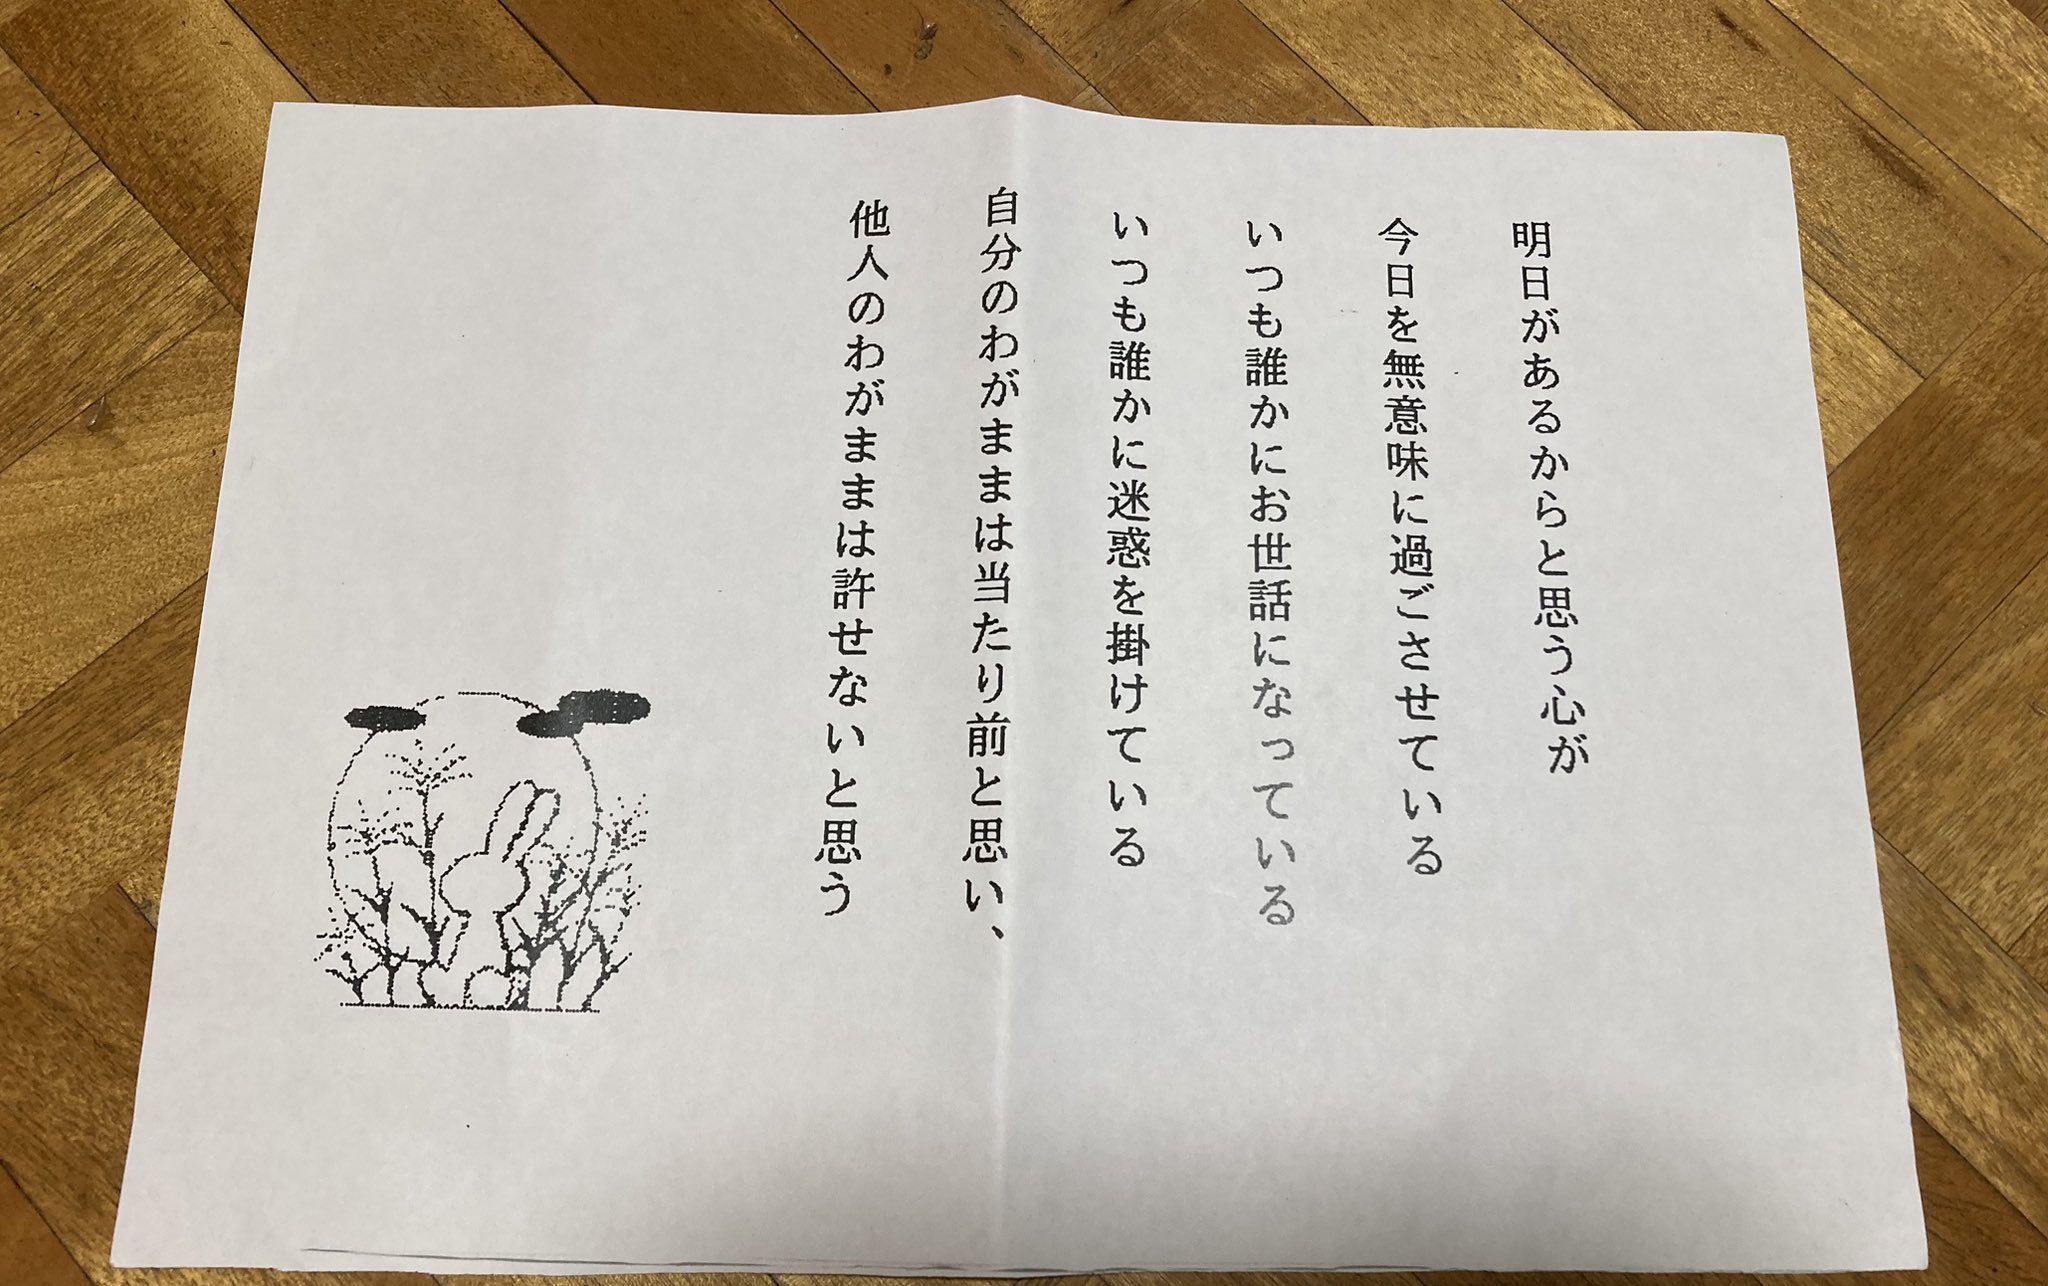 明日があるからと思う心が
今日を無意味に過ごさせている
いつも誰かにお世話になっている
いつも誰かに迷惑を掛けている
自分のわがままは当たり前と思い、
他人のわがままは許せないと思う